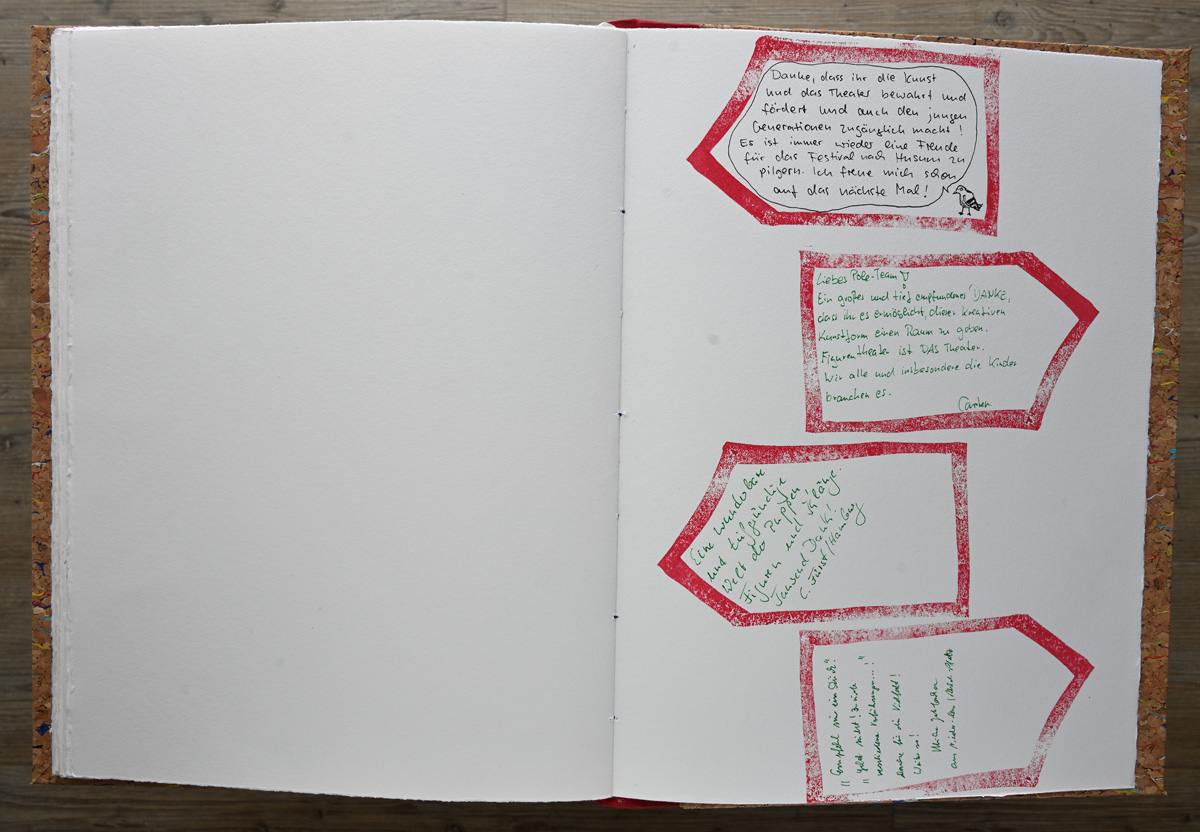 Danke, dass ihr die Kunst
und das Theater bewahrt und
fördert und auch den jungen
Generationen zugänglich macht!
Es ist immer wieder eine Freude
für das Festival nach Husum zu
pilgern. Ich freue mich schon
auf das nächste Mal!
Liebes Pole-Team!
Ein großes und tief empfundenes DANKE,
dass ihr es ermöglicht, dieser kreativen
Kunstform einen Raum zu geben.
Figurentheater ist DAS Theater.
Wir alle und insbesondere die Kinder
brauchen es.
Carsten
Eine wunderbare
und tiefgründige
Welt der Puppen,
Figuren und Klänge.
Tausend Dank!
C. Fürst/Hamburg
"Empfehl mir ein Stück!"
"Geht nicht!
Danke für die Vielfalt!
Weiter so!